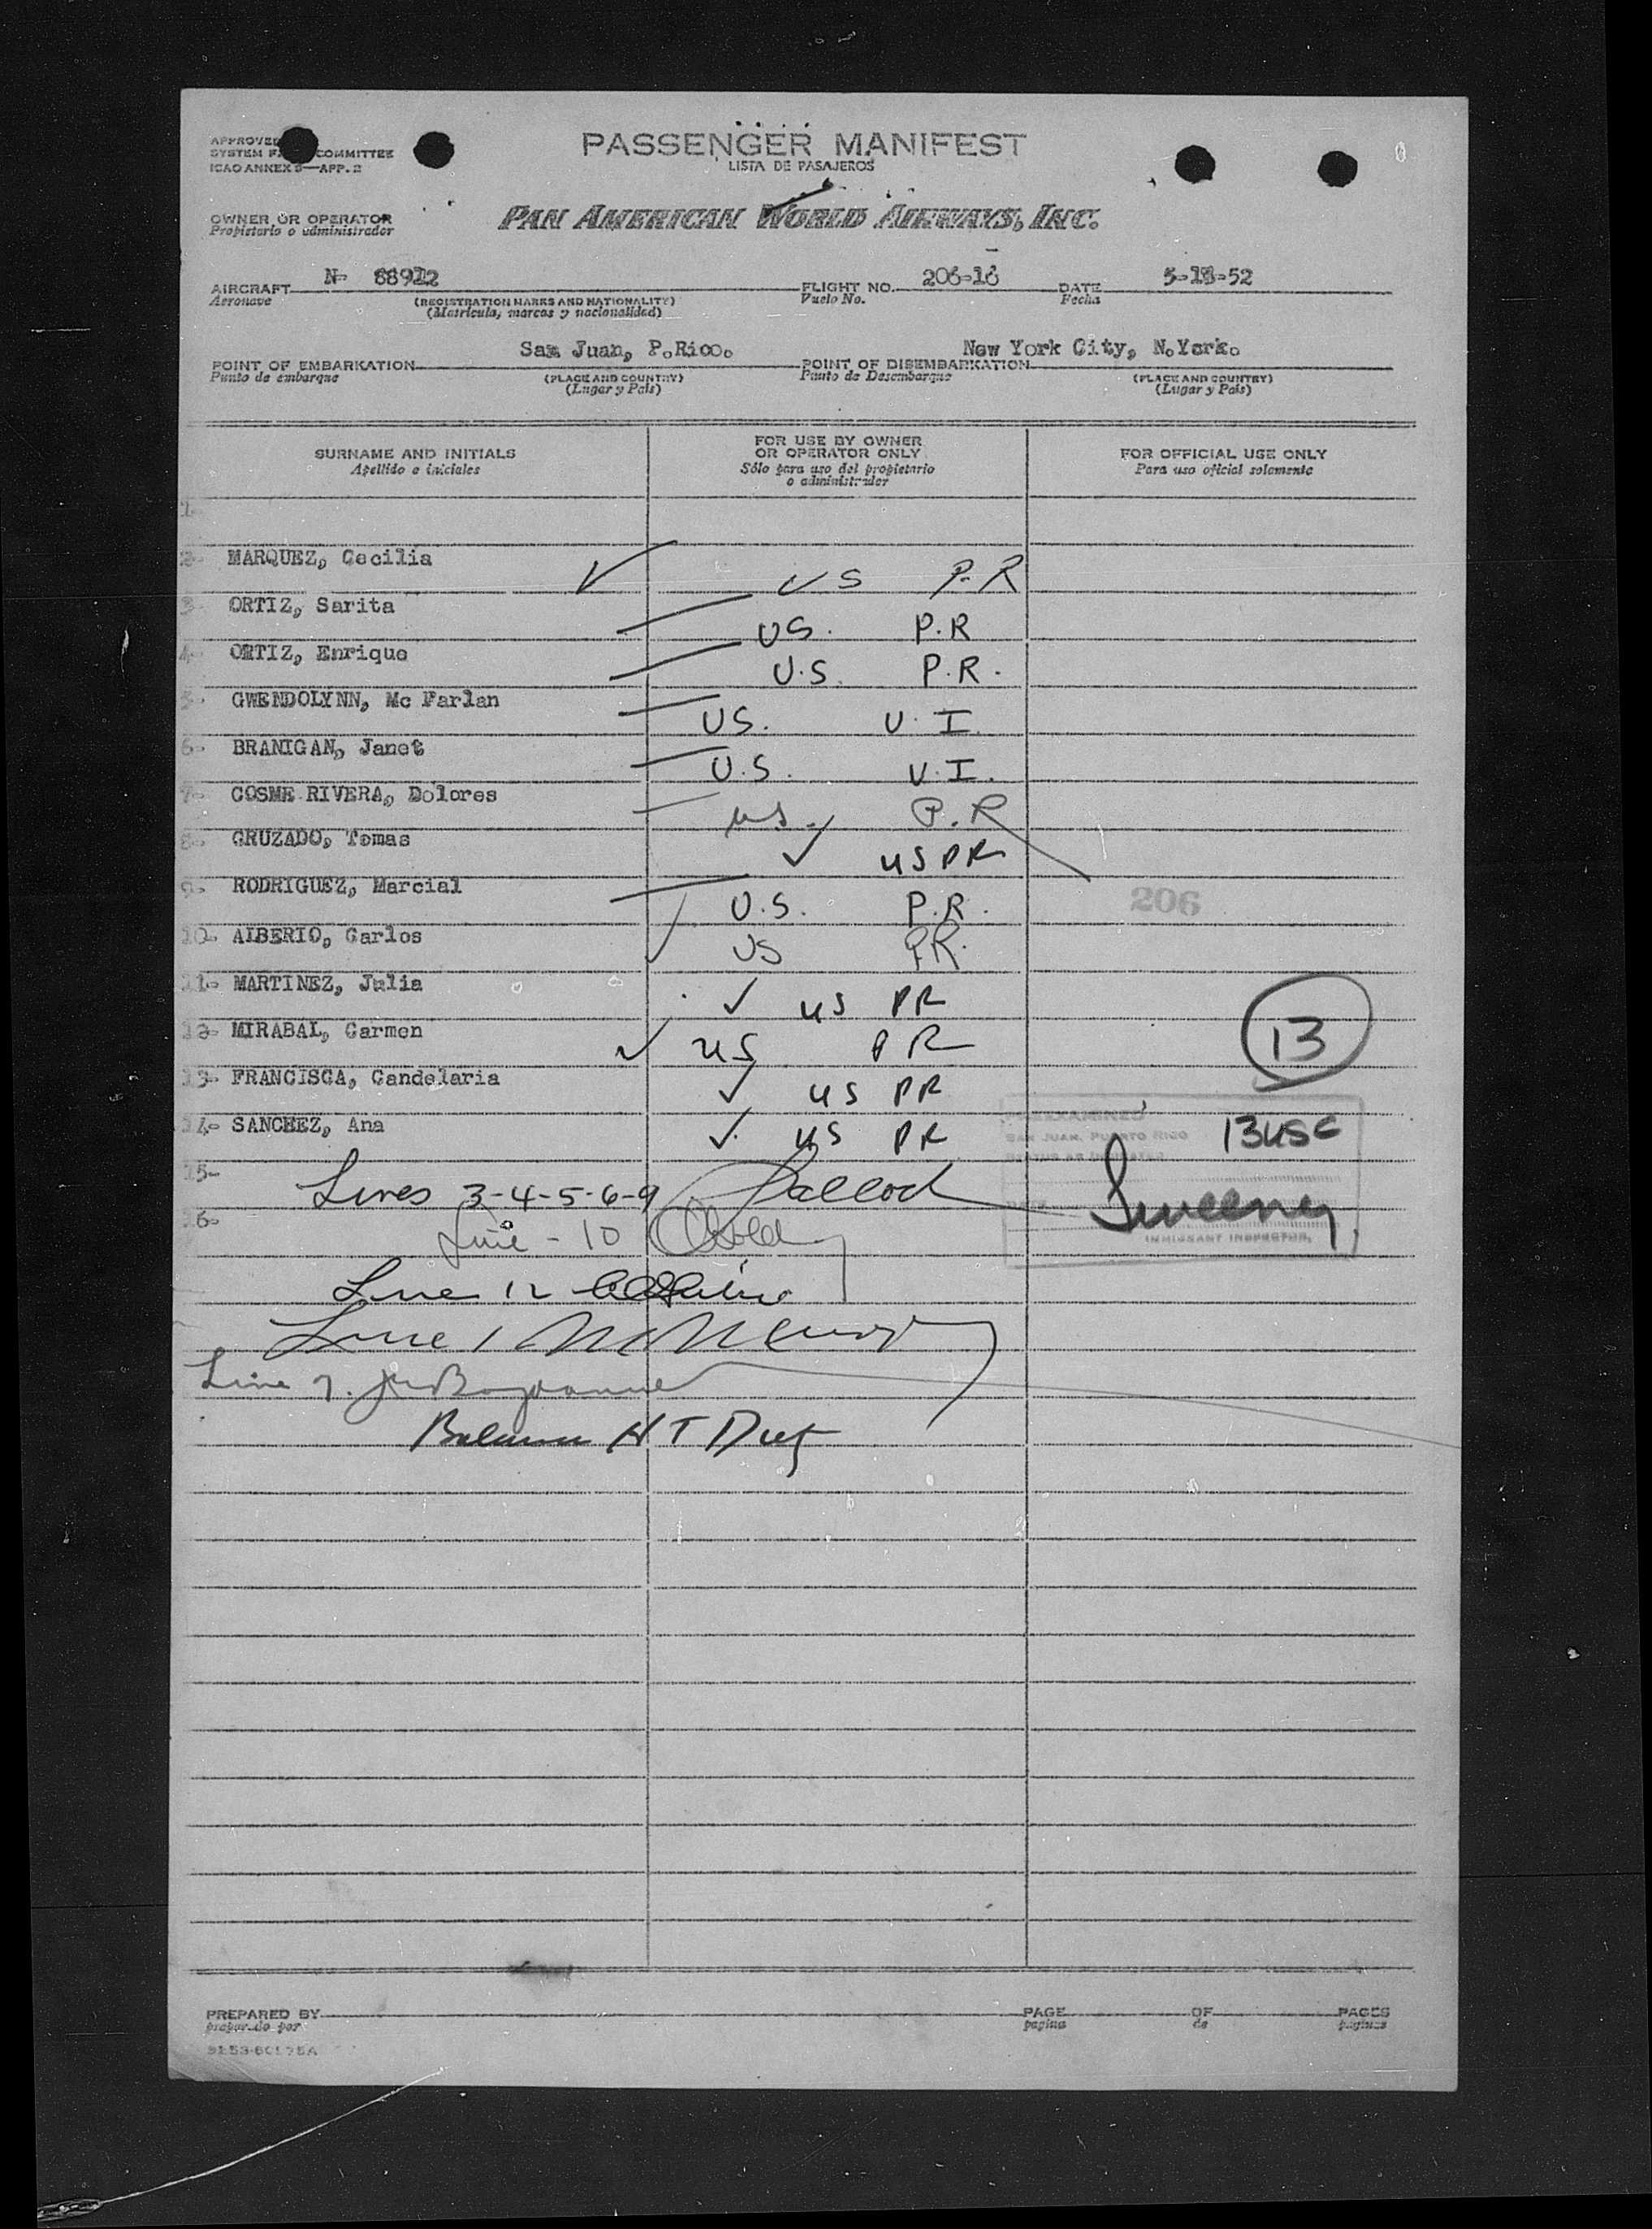 APPROVED
SYSTEM COMMITTEE
ICAO ANNEX 9—APP. 2
PASSENGER MANIFEST
LISTA DE PASAJEROS
OWNER OR OPERATOR
Propietario o administrador
PAN AMERICAN WORLD AIRWAYS, INC.
AIRCRAFT N- 88912 FLIGHT NO. 206-16 DATE 5-18-52
Aeronave (REGISTRATION MARKS AND NATIONALITY) Vuelo No. Fecha
(Matricula, marcas y nacionalidad)
POINT OF EMBARKATION San Juan, P.Rico. POINT OF DISEMBARKATION New York City, N.York.
Punto de embarque (PLACE AND COUNTRY) Punto de Desembarque (PLACE AND COUNTRY)
(Lugar y País) (Lugar y País)
SURNAME AND INITIALS FOR USE BY OWNER OR OPERATOR ONLY FOR OFFICIAL USE ONLY
Apellido e iniciales Sólo para uso del propietario o administrador Para uso oficial solamente
1-
2- MARQUEZ, Cecilia US P.R
3- ORTIZ, Sarita US. P.R
4- ORTIZ, Enrique U.S. P.R.
5- GWENDOLYNN, Mc Farlan US. V.I.
6- BRANIGAN, Janet U.S. V.I.
7- COSME RIVERA, Dolores us. P.R
8- CRUZADO, Tomas US PR
9- RODRIGUEZ, Marcial U.S. P.R.
206
10- ALBERIO, Carlos US P.R.
11- MARTINEZ, Julia US PR
12- MIRABAL, Carmen US PR
13
13- FRANCISCA, Candelaria US PR
14- SANCHEZ, Ana US PR
PREEXAMINED
SAN JUAN, PUERTO RICO
13 USC
15-
Lines 3-4-5-6-9
Sweeney
IMMIGRANT INSPECTOR
16-
Line - 10
Line 12
Line 1
Line 7.
Balance H T
PREPARED BY PAGE OF PAGES
preparado por pagina de paginas